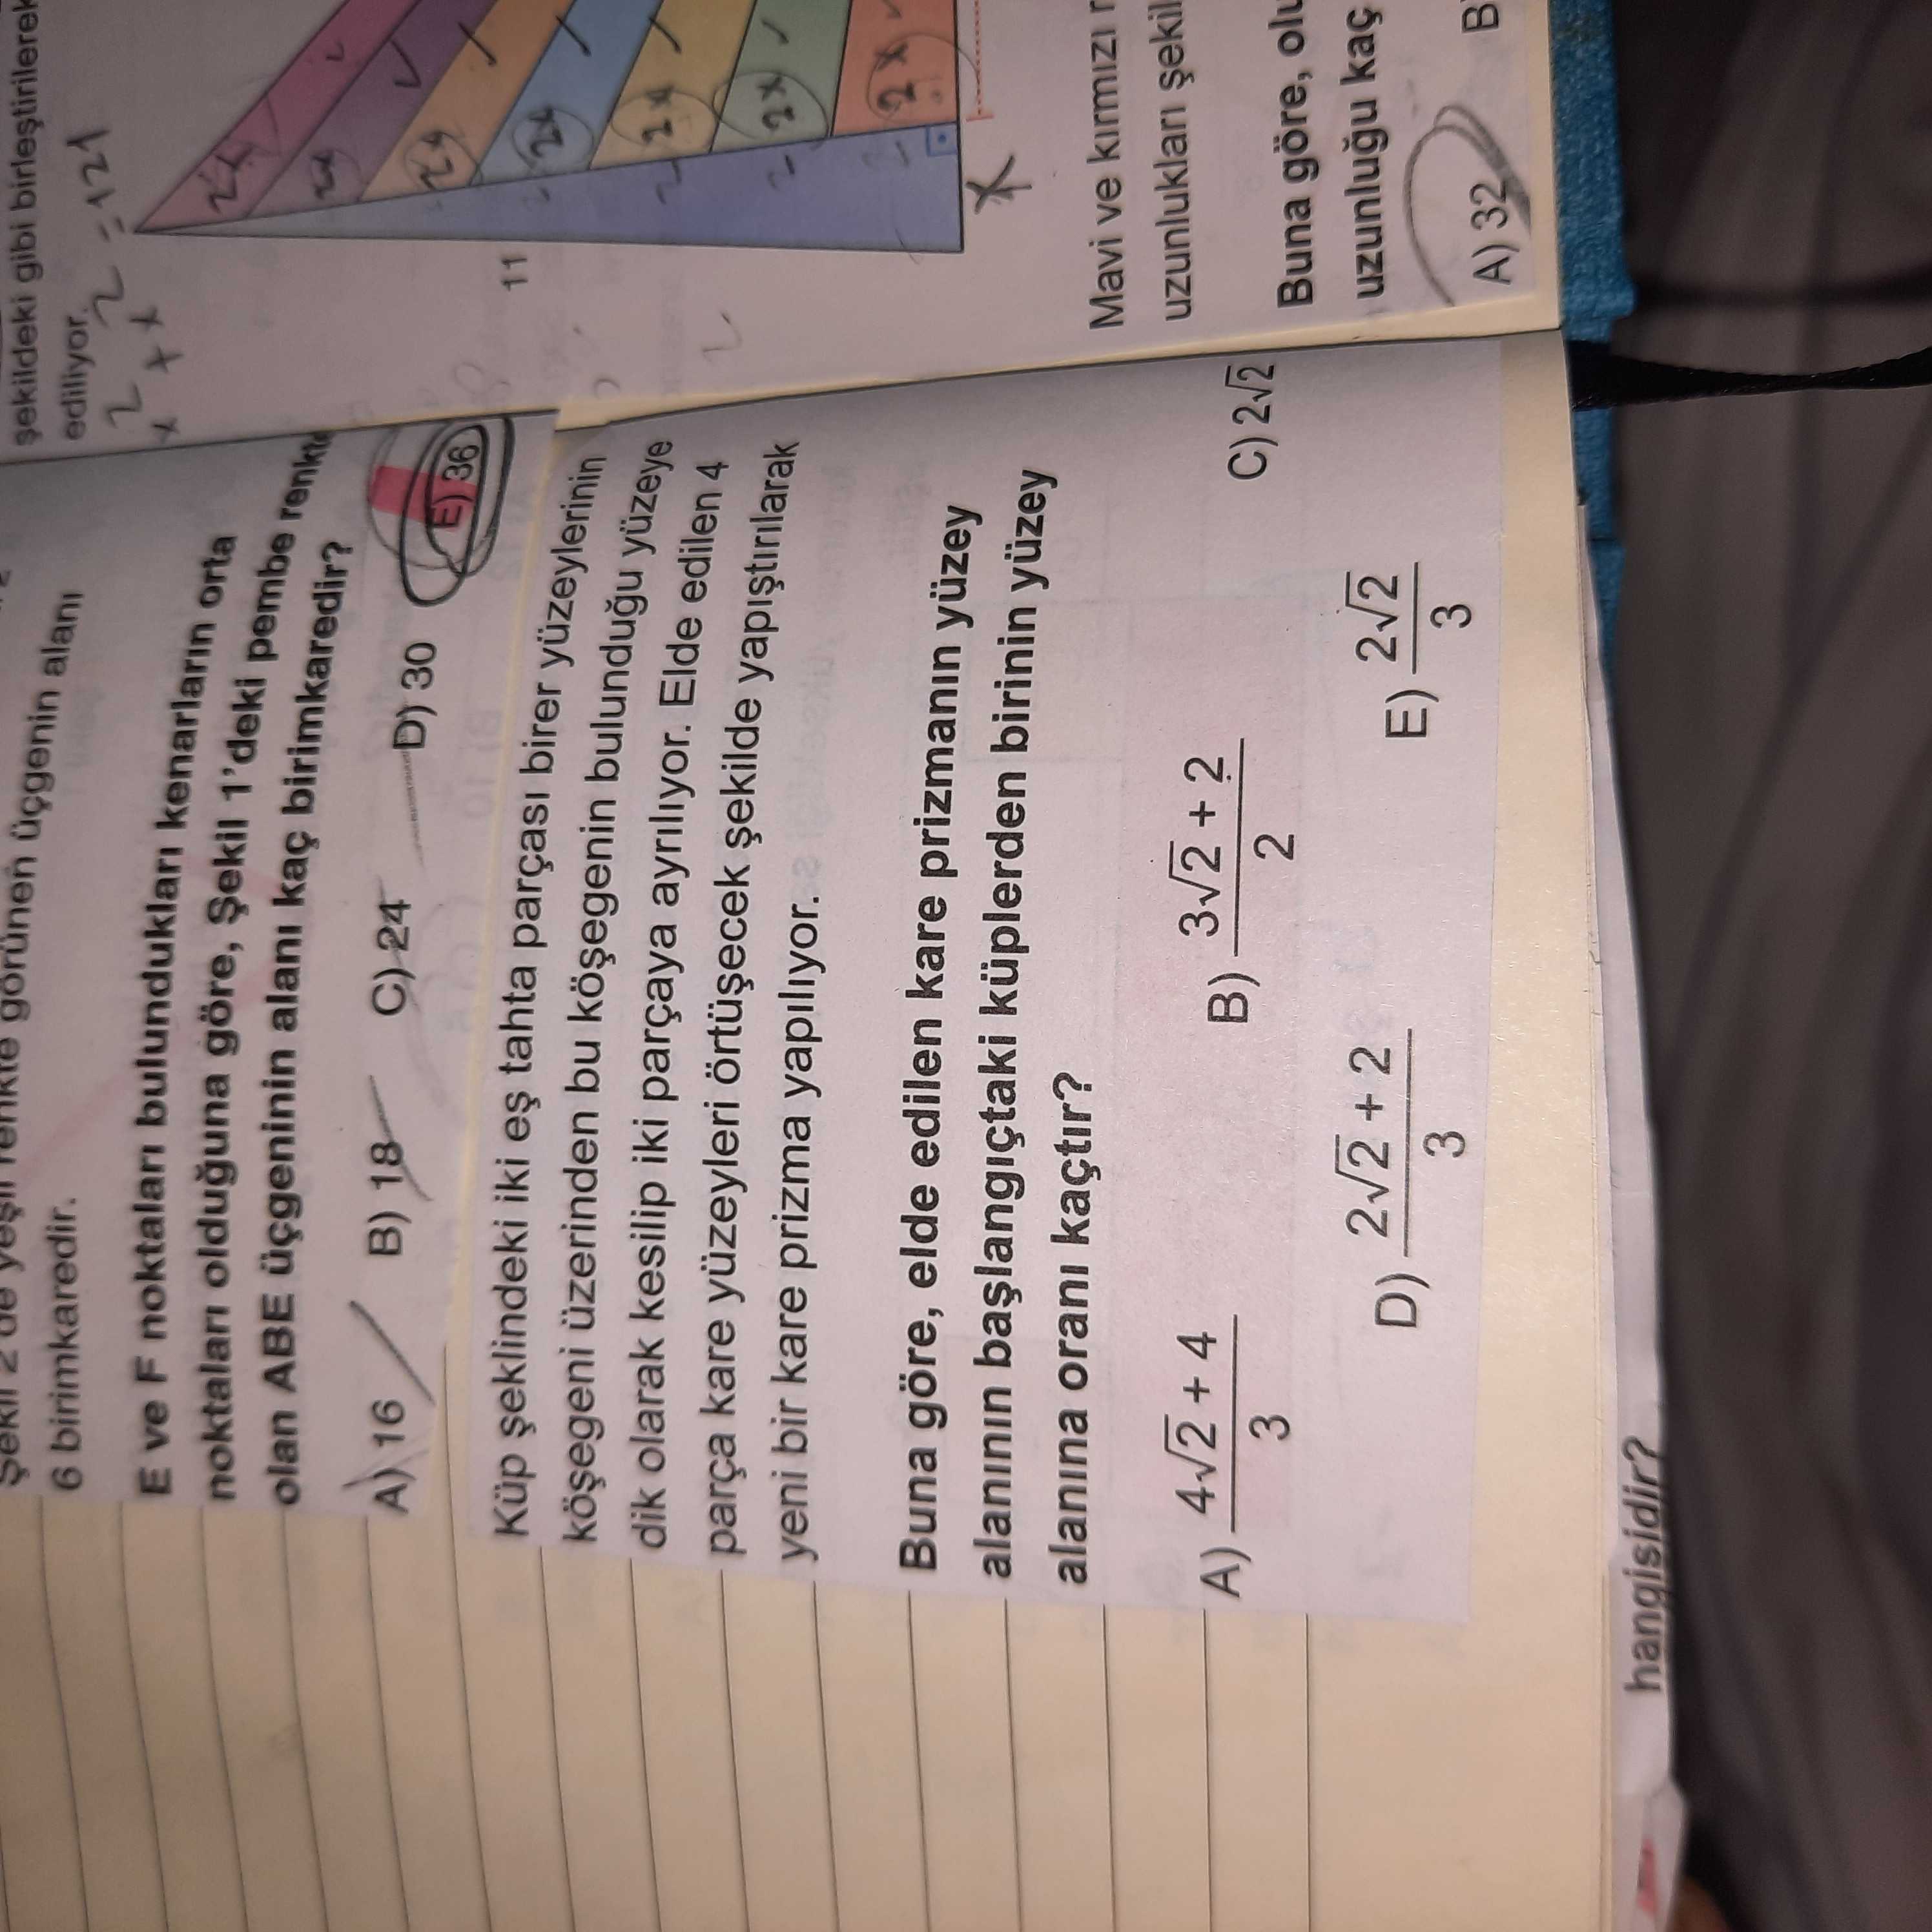 6 birimkaredir.
E ve F noktaları bulundukları kenarların orta
noktaları olduğuna göre, Şekil 1'deki pembe
olan ABE üçgeninin alanı kaç birimkaredir?
A) 16 B) 18 C) 24 D) 30 E) 36
Küp şeklindeki iki eş tahta parçası birer yüzeylerinin
köşegeni üzerinden bu köşegenin bulunduğu yüzeye
dik olarak kesilip iki parçaya ayrılıyor. Elde edilen 4
parça kare yüzeyleri örtüşecek şekilde yapıştırılarak
yeni bir kare prizma yapılıyor.
Buna göre, elde edilen kare prizmanın yüzey
alanının başlangıçtaki küplerden birinin yüzey
alanına oranı kaçtır?
A) (4√2 + 4)/3 B) (3√2 + 2)/2 C) 2√2
D) (2√2 + 2)/3 E) 2√2/3
hangisidir?
şekildeki gibi birleştirilerek
ediliyor.
x² + x² = 121
24
2x
2x
2x
11
x
Mavi ve kırmızı
uzunlukları
Buna göre,
uzunluğu kaç
A) 32 B)